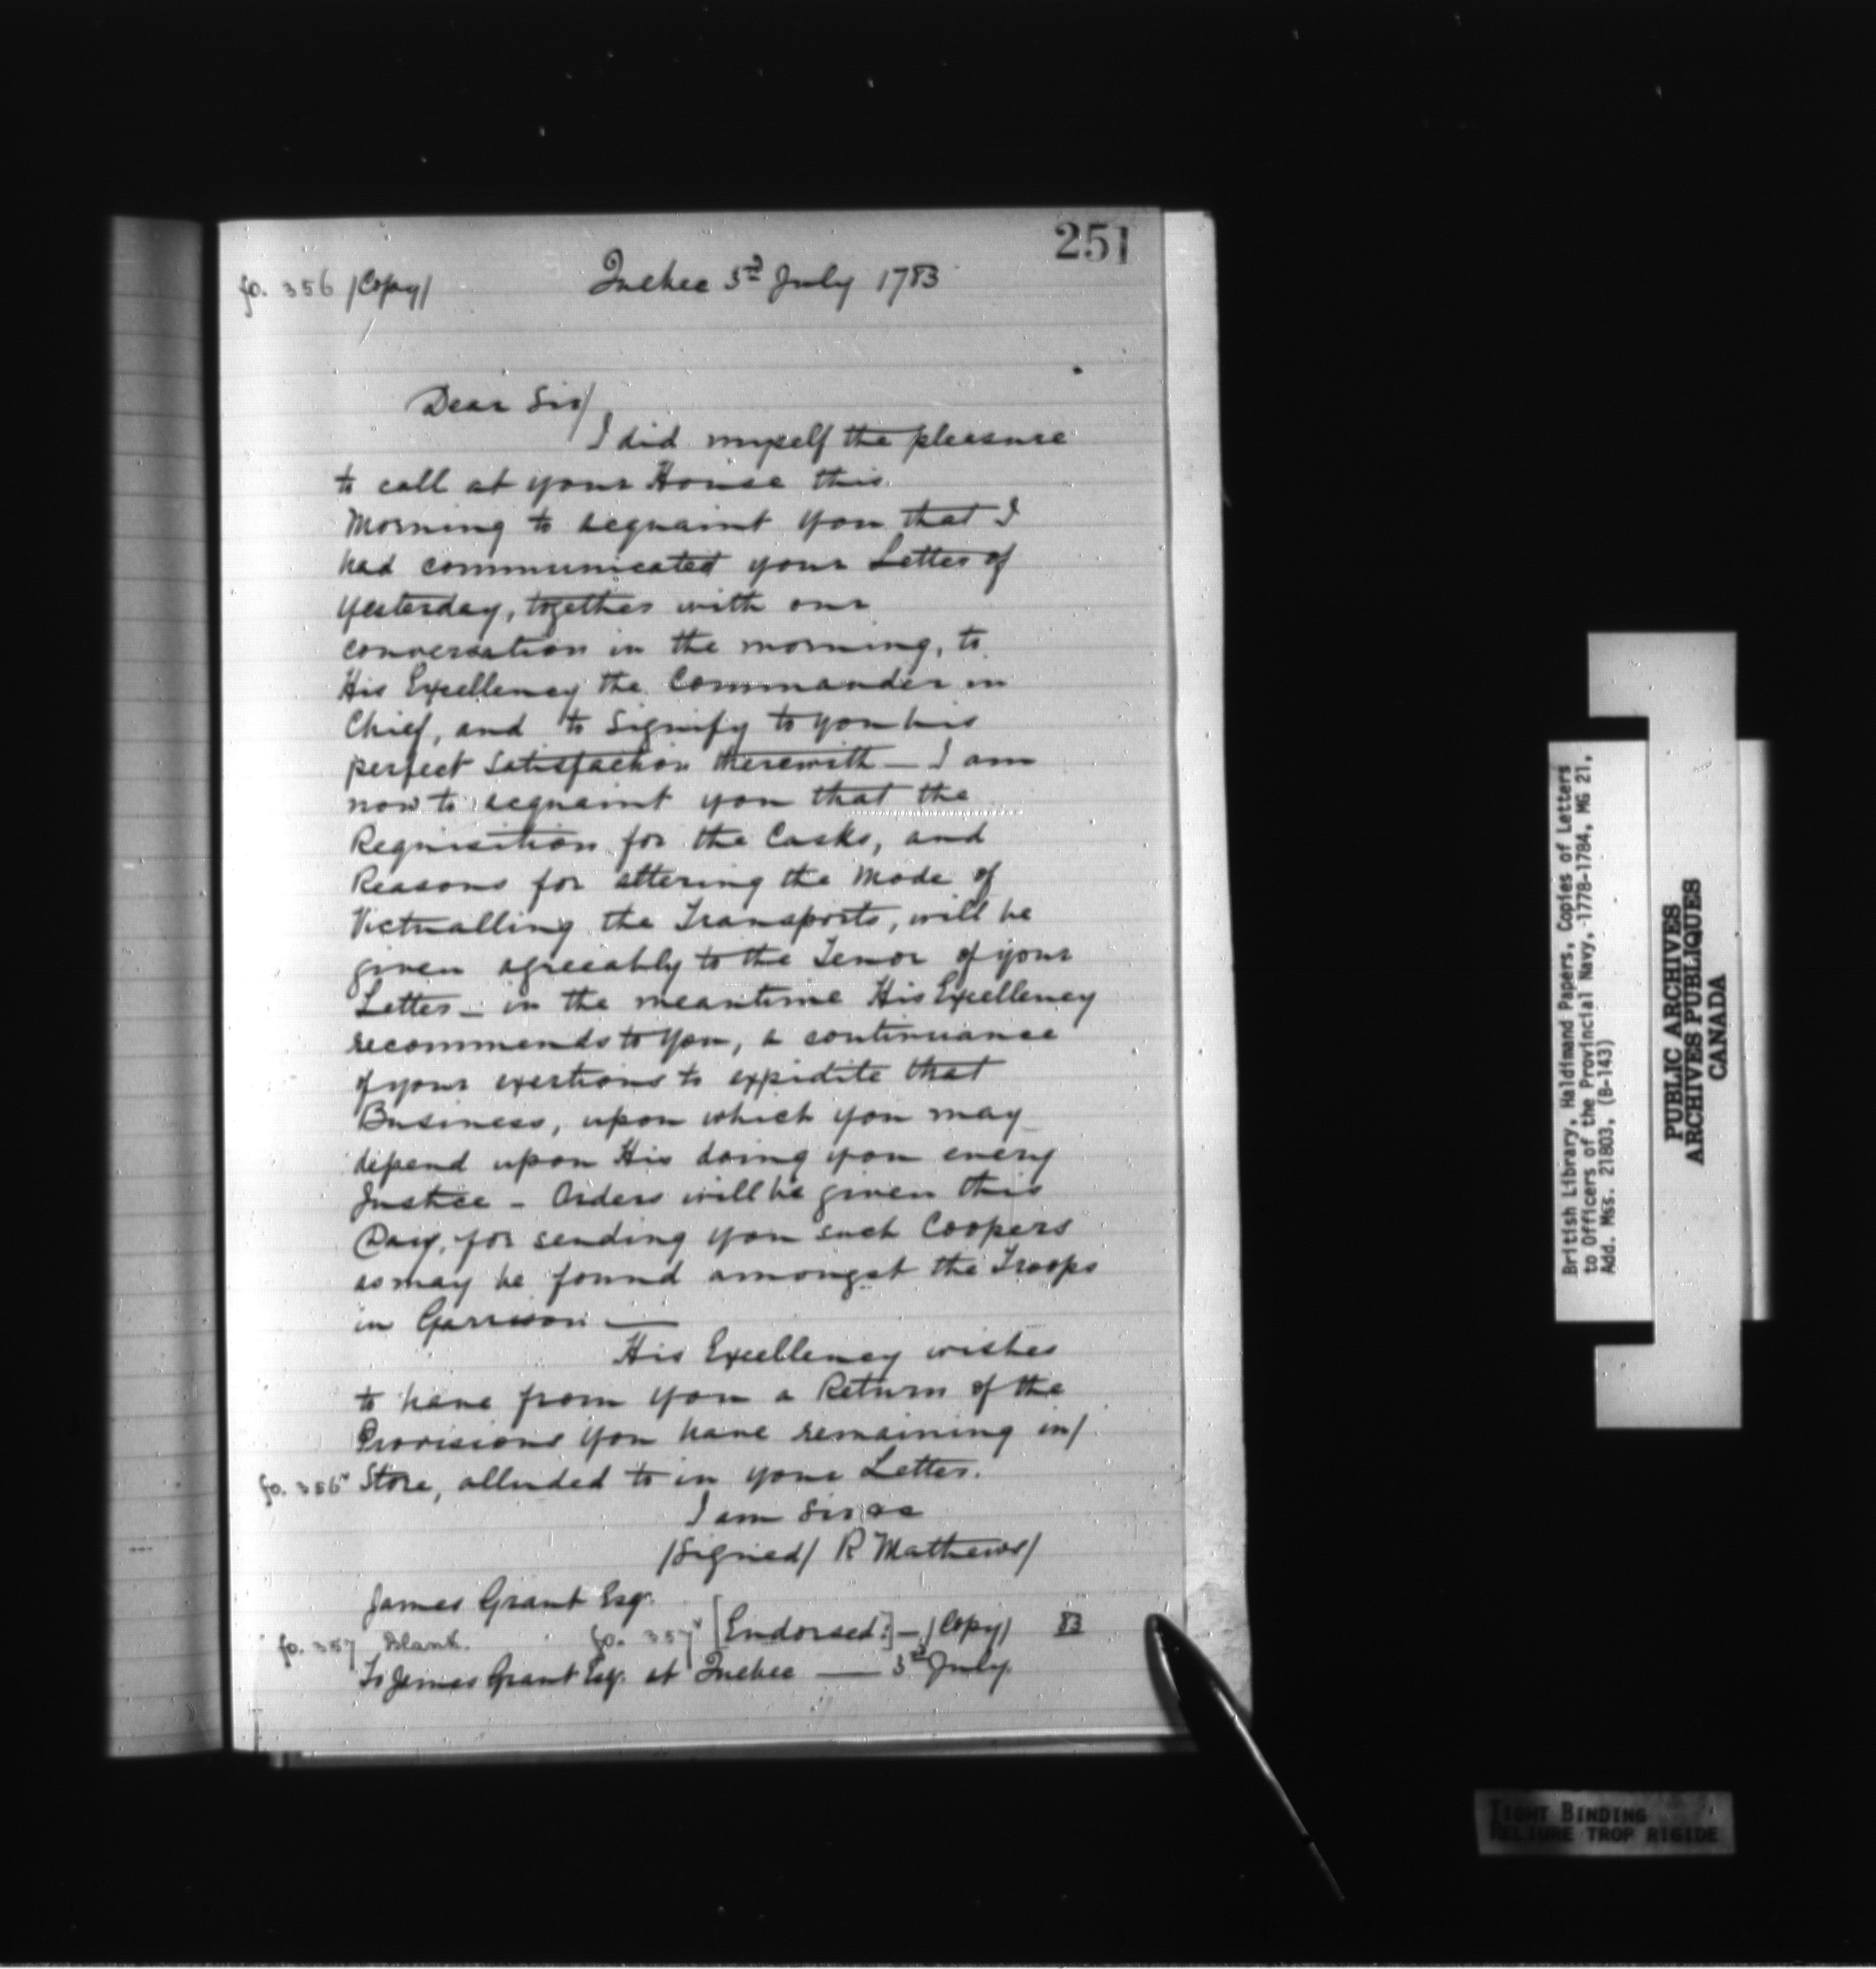 251
fo. 356 /Copy/ Quebec 3d July 1783
Dear Sir/
I did myself the pleasure
to call at your House this
Morning to acquaint you that I
had communicated your Letter of
yesterday, together with our
conversation in the morning, to
His Excellency the Commander in
Chief, and to Signify to you his
perfect Satisfaction therewith — I am
now to acquaint you that the
Requisition for the Casks, and
Reasons for altering the Mode of
Victualling the Transports, will be
given agreeably to the Tenor of your
Letter — in the meantime His Excellency
recommends to You, a continuance
of your exertions to expidite that
Business, upon which you may
depend upon His doing you every
Justice — Orders will be given this
Day, for sending you such Coopers
as may be found amongst the Troops
in Garrison —
His Excellency wishes
to have from you a Return of the
Provisions you have remaining in/
fo. 356v Store, alluded to in your Letter.
I am Sir &c
/Signed/ R Mathews/
James Grant Esqr.
fo. 357 Blank. fo. 357v [Endorsed:] — /Copy/ 83
To James Grant Esqr. at Quebec — 3d July.
British Library, Haldimand Papers, Copies of Letters
to Officers of the Provincial Navy, 1778-1784, MG 21,
Add. Mss. 21803, (B-143)
PUBLIC ARCHIVES
ARCHIVES PUBLIQUES
CANADA
TIGHT BINDING
RELIURE TROP RIGIDE